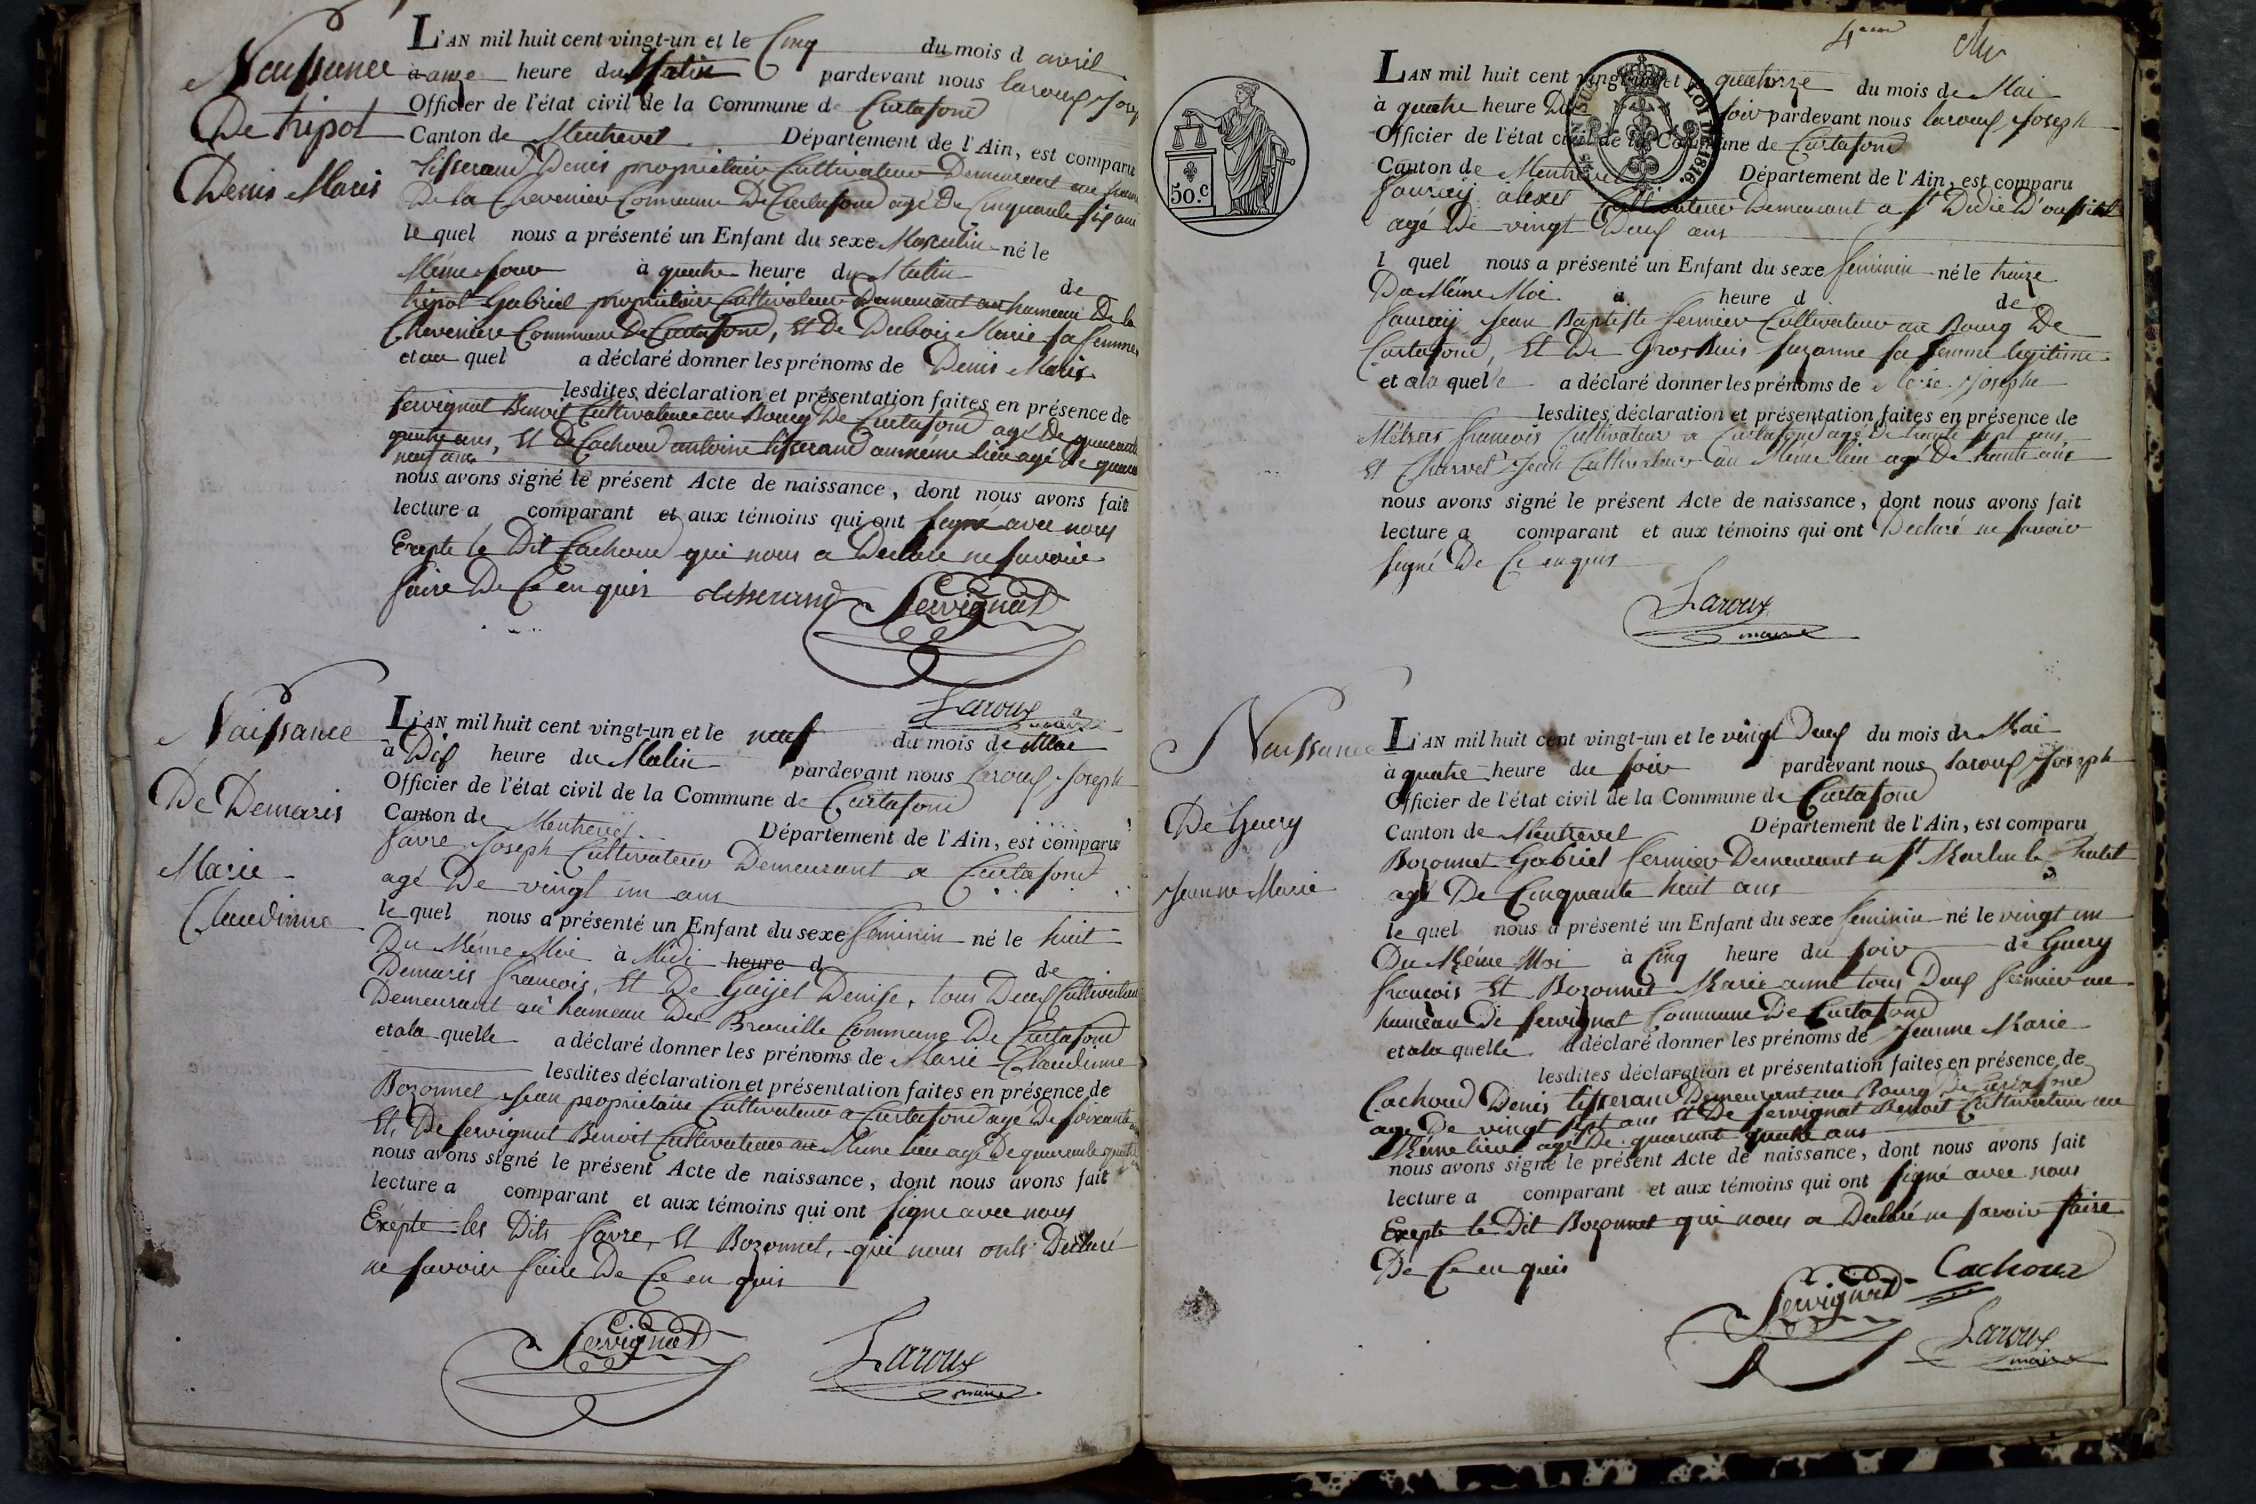 Naissance
De tripot
Denis Marie
L'AN mil huit cent vingt-un et le Cinq du mois d avril
a onze heure du Matin pardevant nous laroux Josep
Officier de l'état civil de la Commune de Curtafond
Canton de Montrevel Département de l'Ain, est comparu
tisserand Denis propriétaire Cultivateur Demeurant au hameau
De la Chevenière Commune De Curtafond agé de Cinquante six ans
le quel nous a présenté un Enfant du sexe Masculin né le
Même jour à quatre heure du Matin de
tripot Gabriel propriétaire Cultivateur Demeurant au hameau De la
Chevenière Commune De Curtafond, Et de Dubois Marie sa femme
et au quel a déclaré donner les prénoms de Denis Marie
lesdites déclaration et présentation faites en présence de
servignat Benoit Cultivateur au Bourg De Curtafond agé de quarante
quatre ans, Et De Cachoud antoine tisserand au même lieu agé de quarante
neuf ans
nous avons signé le présent Acte de naissance, dont nous avons fait
lecture a comparant et aux témoins qui ont signé avec nous
Exepte le Dit Cachoud qui nous a Declaré ne savoir
faire De Ce enquis tisserand Servignat
Laroux
maire
Naissance
De Demaris
Marie
Claudinne
L'AN mil huit cent vingt-un et le neuf du mois de Mai
à Dix heure du Matin pardevant nous laroux Joseph
Officier de l'état civil de la Commune de Curtafond
Canton de Montrevel Département de l'Ain, est comparu
favre Joseph Cultivateur Demeurant a Curtafond
agé De vingt un ans
le quel nous a présenté un Enfant du sexe feminin né le huit
Du Même Moi à Midi heure d de
Demaris francois, Et De Guyet Denise, tous Deux Cultivateur
Demeurant au hameau Du Brouille Commune De Curtafond
et a la quelle a déclaré donner les prénoms de Marie Claudinne
lesdites déclaration et présentation faites en présence de
Bozonnet Jean propriétaire Cultivateur a Curtafond agé De soixante
Et De servignat Benoit Cultivateur au Même lieu agé De quarante quatre
nous avons signé le présent Acte de naissance, dont nous avons fait
lecture a comparant et aux témoins qui ont signé avec nous
Exepte les Dits favre, Et Bozonnet, qui nous onts Declaré
ne savoir faire De Ce en quis
Servignat Laroux
maire
4eme
50.c
LOI DE 1816.
L'AN mil huit cent vingt-un et le quatorze du mois de Mai
à quatre heure Du soir pardevant nous laroux Joseph
Officier de l'état civil de la Commune de Curtafond
Canton de Montrevel Département de l'Ain, est comparu
alexis Cultivateur Demeurant a St Didié D'oussiat
agé De vingt Deux ans
l quel nous a présenté un Enfant du sexe feminin né le treize
Du Même Moi à heure d de
Jean Baptiste fermier Cultivateur au Bourg De
Curtafond, Et De Grosbuis suzanne sa femme legitime
et a la quelle a déclaré donner les prénoms de Josephe
lesdites déclaration et présentation faites en présence de
francois Cultivateur a Curtafond agé De trente sept ans,
Et Charvet Jean Cultivateur au Même lieu agé De trente ans
nous avons signé le présent Acte de naissance, dont nous avons fait
lecture a comparant et aux témoins qui ont Declaré ne savoir
signé De Ce enquis
Laroux
maire
Naissance
De Guery
Jeanne Marie
L'AN mil huit cent vingt-un et le vingt Deux du mois de Mai
à quatre heure du soir pardevant nous laroux Joseph
Officier de l'état civil de la Commune de Curtafond
Canton de Montrevel Département de l'Ain, est comparu
Bozonnet Gabriel fermier Demeurant a St Martin le Chatel
agé De Cinquante huit ans
le quel nous a présenté un Enfant du sexe feminin né le vingt un
Du Même Moi à Cinq heure du soir de Guery
francois Et Bozonnet Marie anne tous Deux fermier au
hameau De servignat Commune De Curtafond
et a la quelle a déclaré donner les prénoms de Jeanne Marie
lesdites déclaration et présentation faites en présence de
Cachoud Denis tisserand Demeurant au Bourg De Curtafond
agé De vingt sept ans Et De servignat Benoit Cultivateur au
Même lieu agé De quarant quatre ans
nous avons signé le présent Acte de naissance, dont nous avons fait
lecture a comparant et aux témoins qui ont signé avec nous
Exepte le Dit Bozonnet qui nous a Declaré ne savoir faire
De Ce en quis
Servignat Cachoud
Laroux
maire